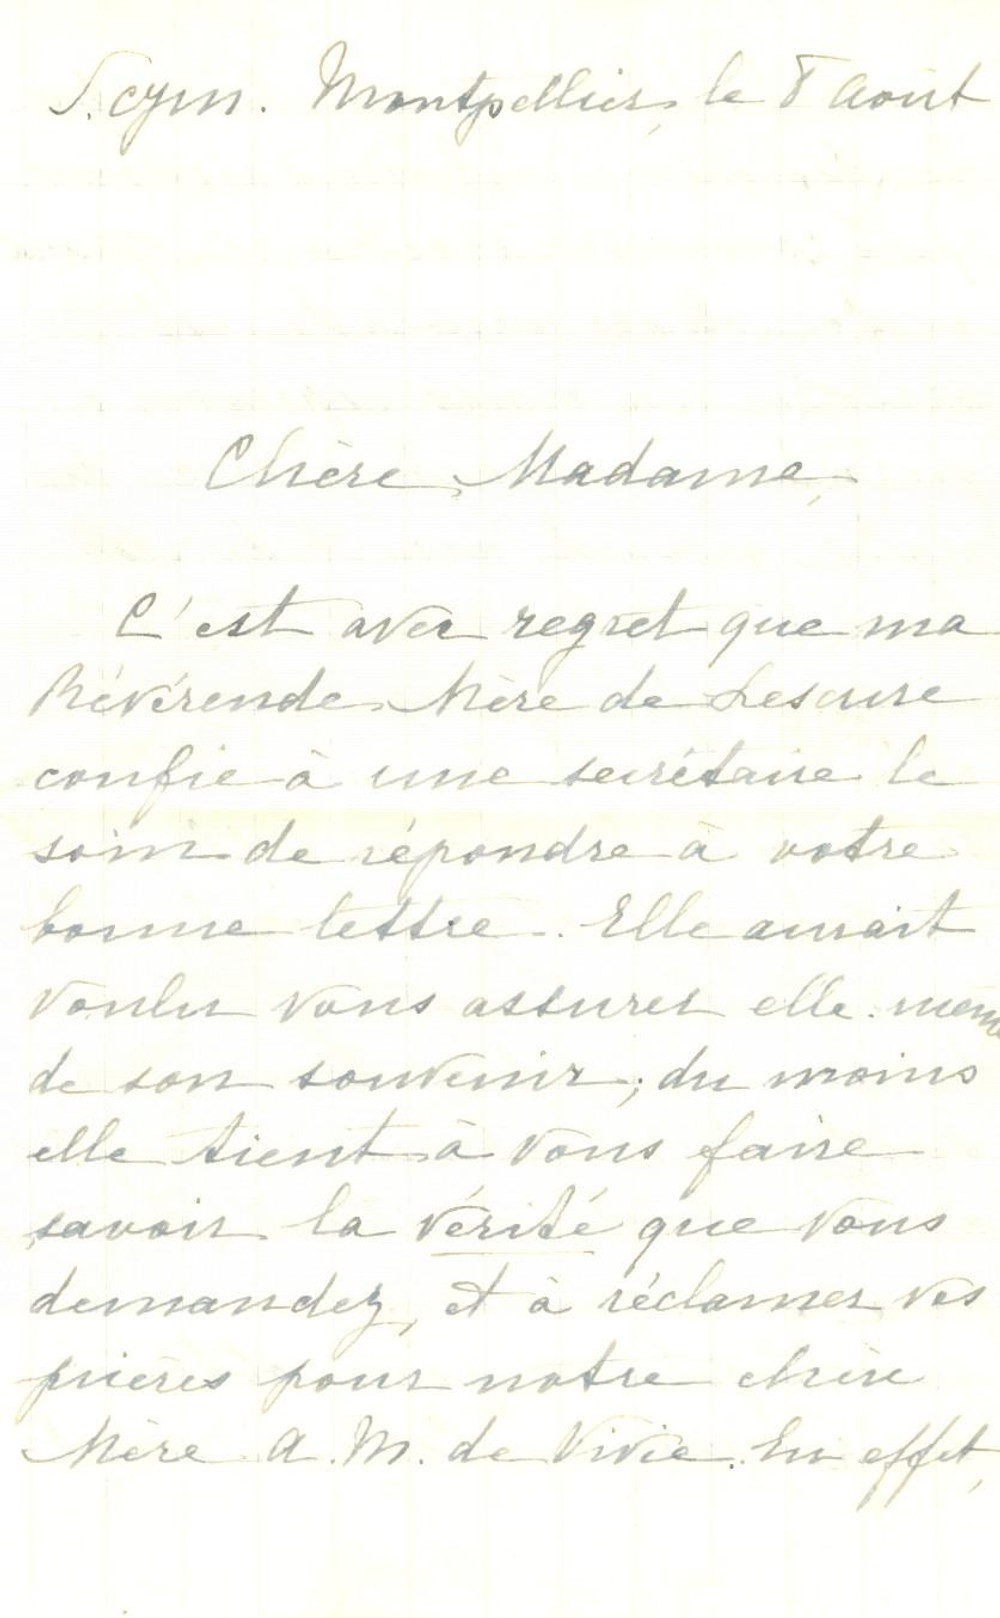 Montpellier, le 8 Août
Chère Madame,
C'est avec regret que ma
Révérende Mère de Lescure
confie à une secrétaire le
soin de répondre à votre
bonne lettre. Elle aurait
voulu vous assurer elle-même
de son souvenir; du moins
elle tient à vous faire
savoir la vérité que vous
demandez, et à réclamer vos
prières pour notre chère
Mère A. M. de Vivie. En effet,